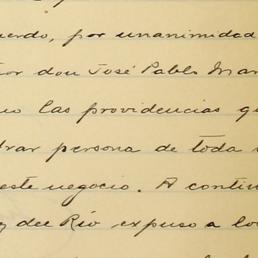 uerdo, por unanimidad
or don José Pablo Mar
las providencias q
rar persona de toda
este negocio. A contin
del Río expuso a lo